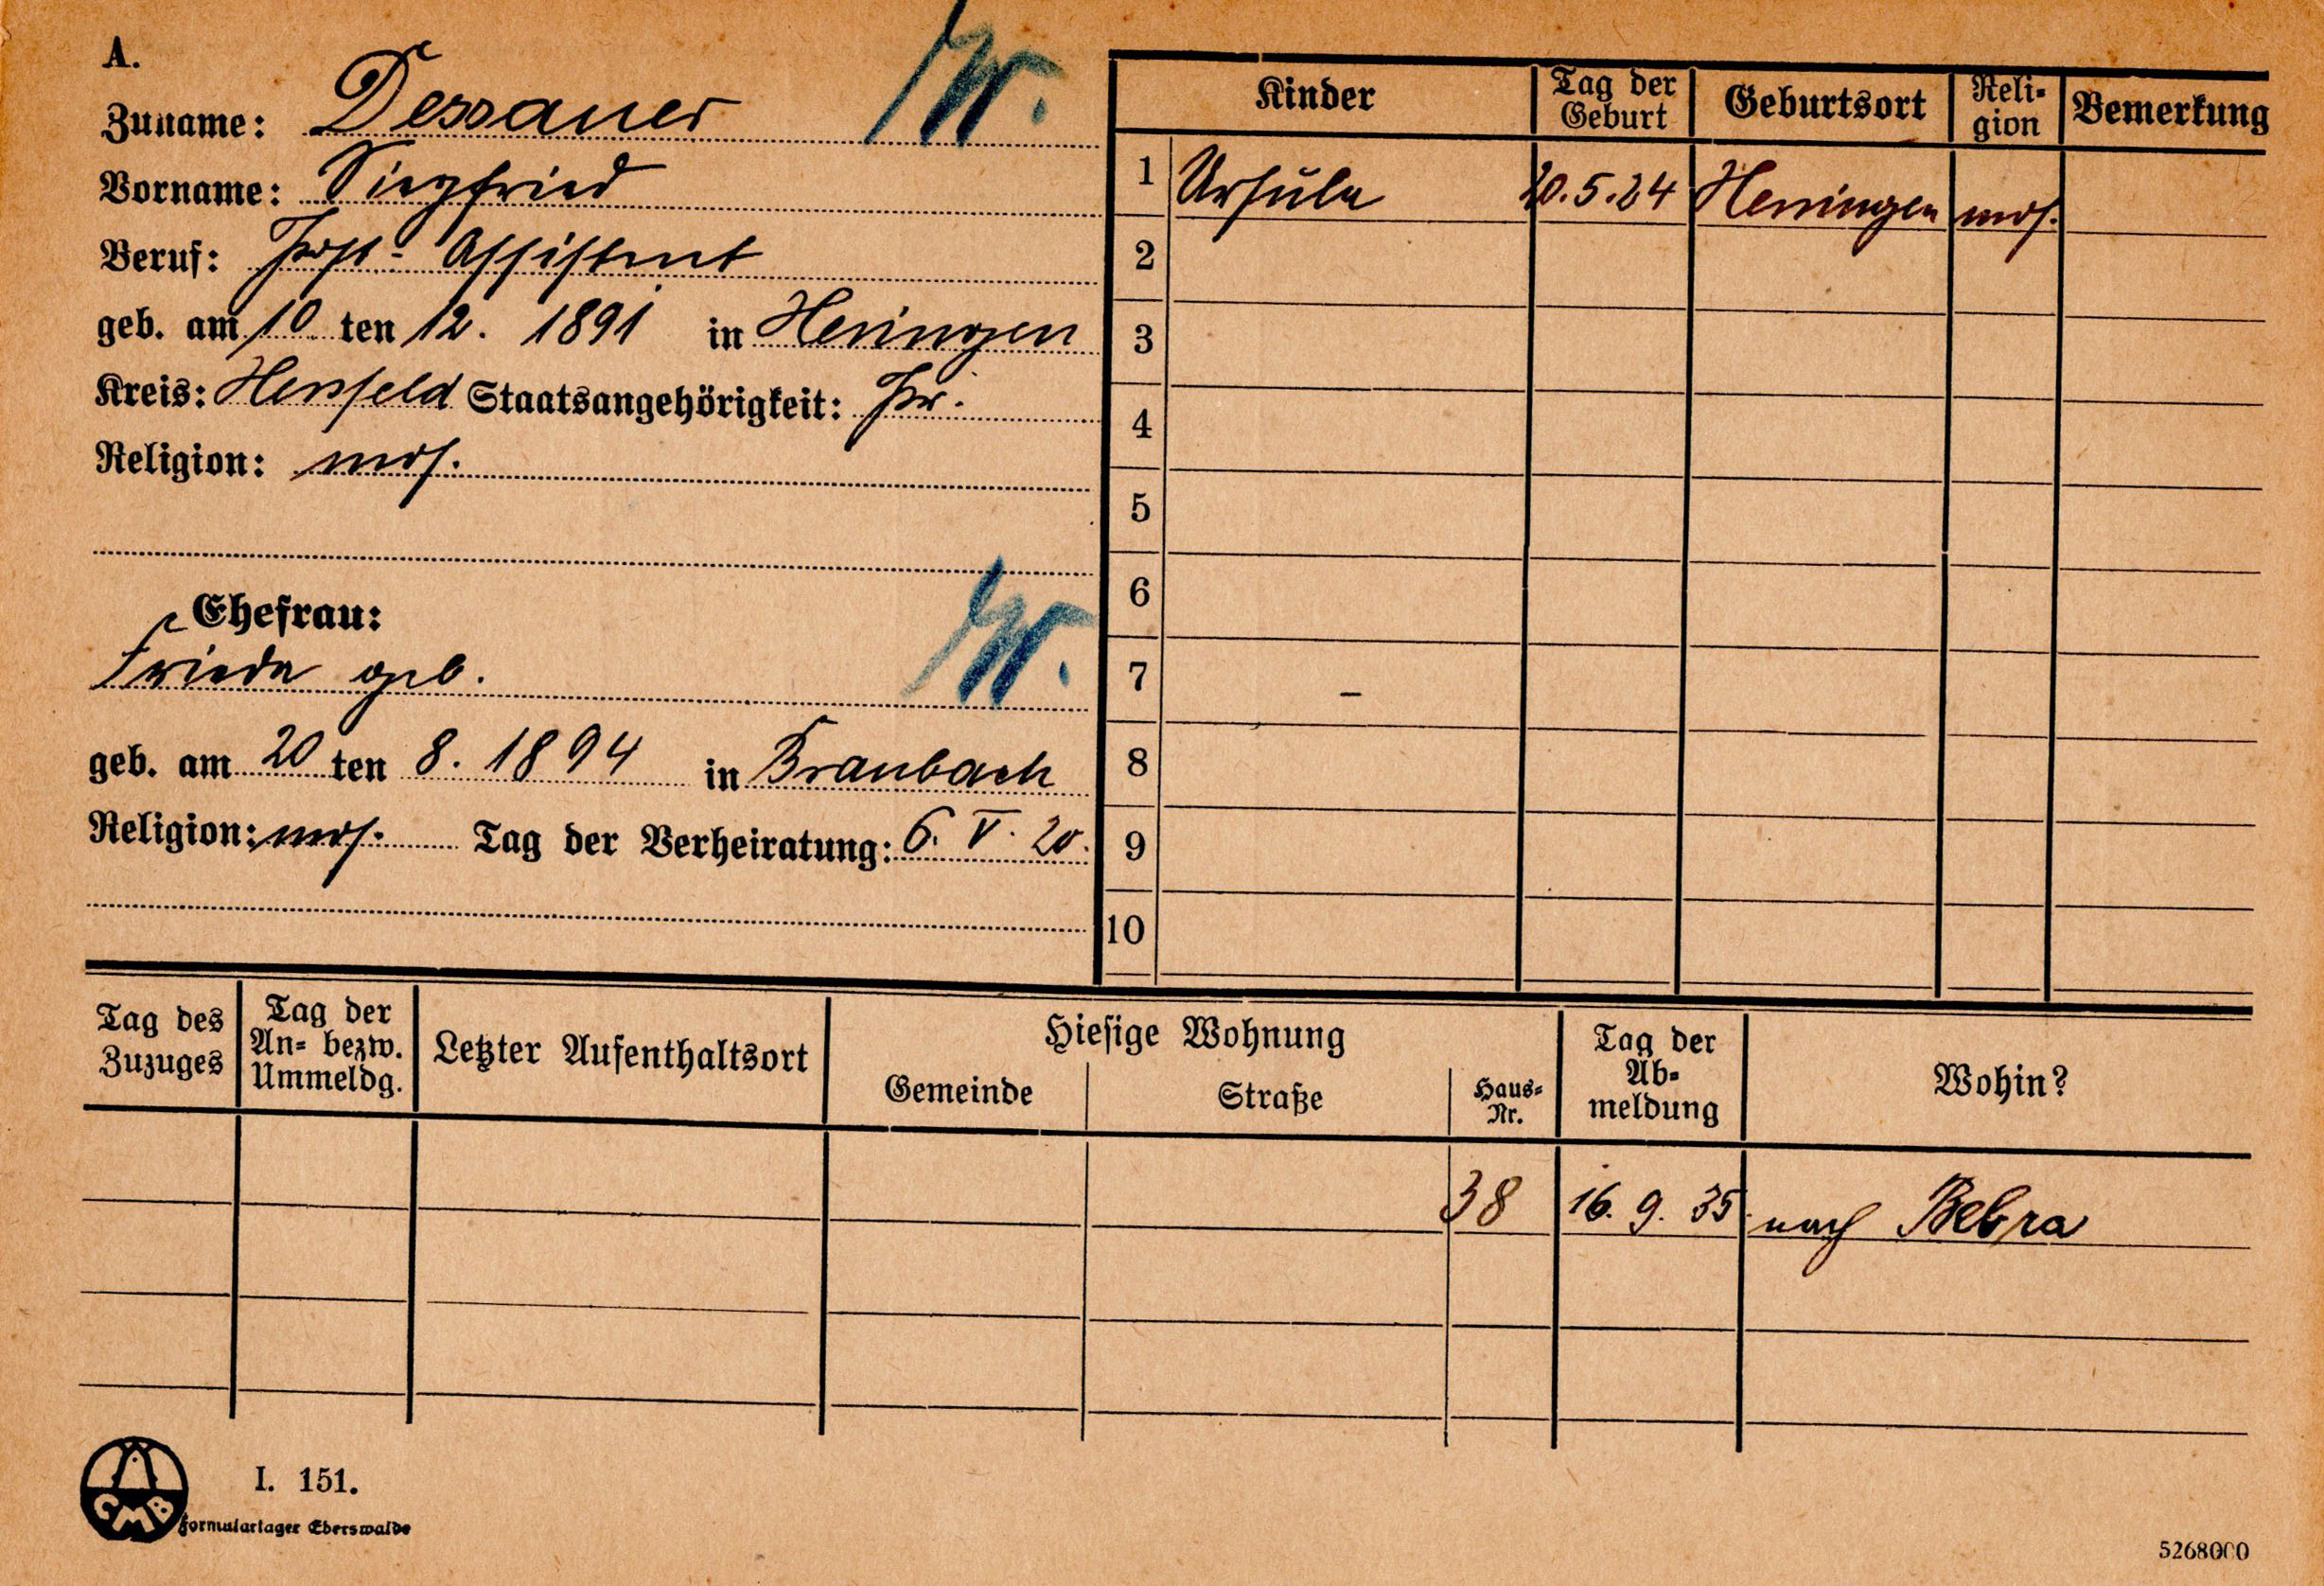 A.
Zuname: Dessauer W.
Vorname: Siegfried
Beruf: Post-Assistent
geb. am 10 ten 12. 1891 in Heringen
Kreis: Hersfeld Staatsangehörigkeit: Pr.
Religion: mos.
Ehefrau:
Frieda geb. W.
geb. am 20 ten 8. 1894 in Braubach
Religion: mos. Tag der Verheiratung: 6. V. 20.
Kinder Tag der Geburt Geburtsort Reli-gion Bemerkung
1 Ursula 20.5.24 Heringen mos.
2
3
4
5
6
7 –
8
9
10
Tag des Zuzuges Tag der An- bezw. Ummeldg. Letzter Aufenthaltsort Hiesige Wohnung Gemeinde Straße Haus-Nr. Tag der Ab-meldung Wohin?
38 16. 9. 35 nach Bebra
CMB
I. 151.
Formularlager Eberswalde
5268000